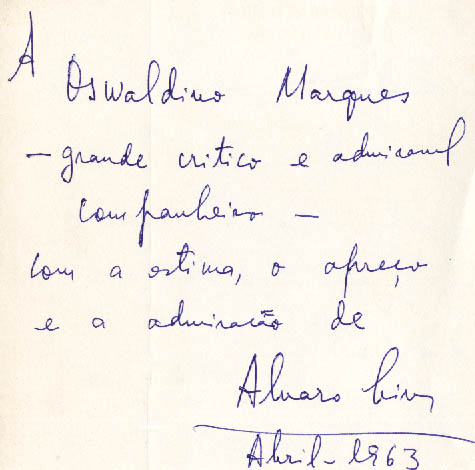 A
Oswaldino Marques
— grande critico e admiravel
companheiro —
com a estima, o apreço
e a admiração de
Alvaro Lins
Abril - 1963